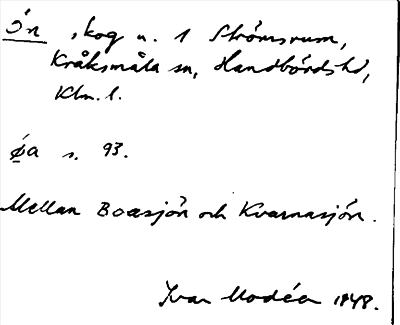 Ön, skog u. 1 Strömsrum,
Kråksmåla sn, Handbörds hd,
Klm. l.
öa s. 93.
Mellan Boasjön och Kvarnasjön.
Ivar Modéer 1948.